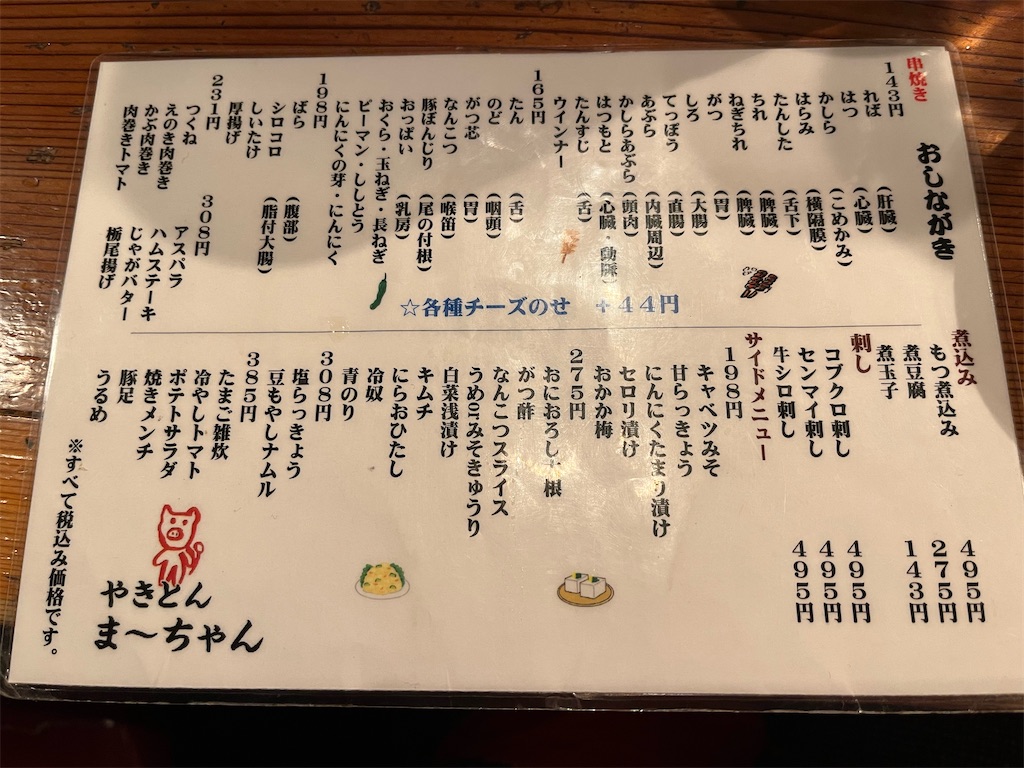 おしながき
串焼き
143円
れば（肝臓）
はつ（心臓）
かしら（こめかみ）
はらみ（横隔膜）
たんした（舌下）
ちれ（脾臓）
ねぎちれ（脾臓）
がつ（胃）
しろ（大腸）
てっぽう（直腸）
あぶら（内臓周辺）
かしらあぶら（頭肉）
はつもと（心臓・動脈）
たんすじ（舌）
ウインナー
165円
たん（舌）
のど（咽頭）
がつ芯（胃）
なんこつ（喉笛）
豚ぼんじり（尾の付根）
おっぱい（乳房）
おくら・玉ねぎ・長ねぎ
ピーマン・ししとう
にんにくの芽・にんにく
198円
ばら（腹部）
シロコロ（脂付大腸）
しいたけ
厚揚げ
231円
つくね
えのき肉巻き
かぶ肉巻き
肉巻きトマト
308円
アスパラ
ハムステーキ
じゃがバター
栃尾揚げ
☆各種チーズのせ ＋44円
煮込み
もつ煮込み 495円
煮豆腐 275円
煮玉子 143円
刺し
コブクロ刺し 495円
センマイ刺し 495円
牛シロ刺し 495円
サイドメニュー
198円
キャベツみそ
甘らっきょう
にんにくたまり漬け
セロリ漬け
おかか梅
275円
おにおろし大根
がつ酢
なんこつスライス
うめorみそきゅうり
白菜浅漬け
キムチ
にらおひたし
冷奴
青のり
308円
塩らっきょう
豆もやしナムル
385円
たまご雑炊
冷やしトマト
ポテトサラダ
焼きメンチ
豚足
うるめ
※すべて税込み価格です。
やきとん
ま～ちゃん